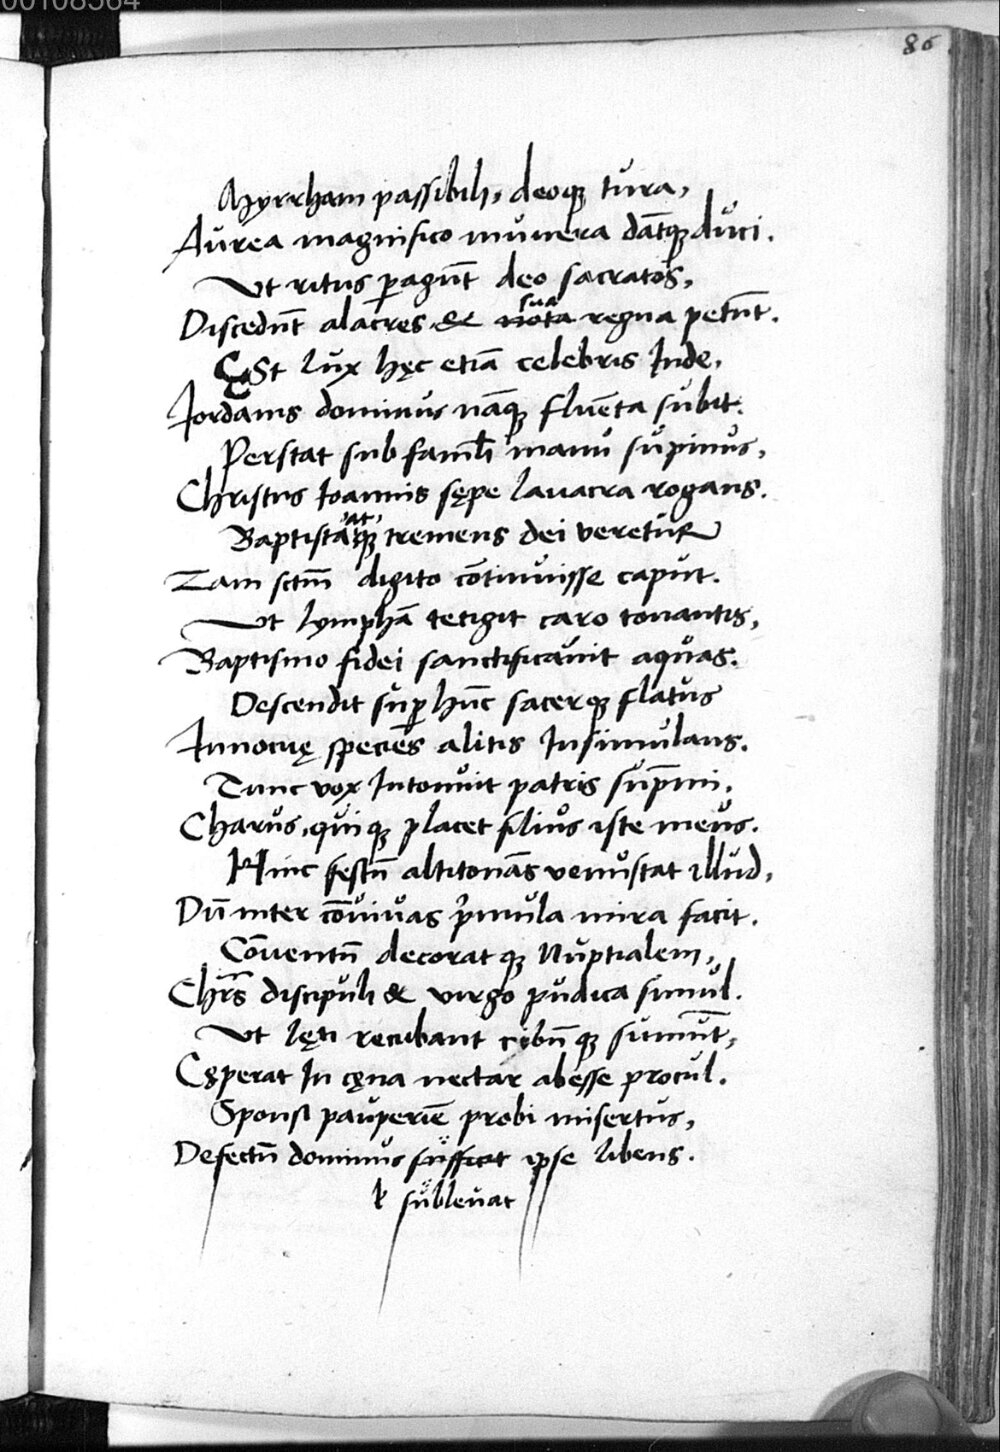 00108564
86
Myrrham passibili, deoqꝫ tura,
Aurea magnifico munera dāt͡qꝫ duci.
Vt ritus ꝑagūt deo sacratos,
sua
Discedūt alacres & nota regna petūt.
Est lux hęc etiā celebris Inde,
Iordanis dominus nāqꝫ fluēta subit.
Perstat sub famli̅ manu supinus,
Christus Ioannis sępe lauacra rogans.
at,
Baptista qꝫ tremens dei veretur
Tam sctm̅ digito cōtinuisse caput.
Vt lymphā tetigit caro tonantis,
Baptismo fidei sanctificauit aquas.
Descendit suꝑ hūc sacerqꝫ flatus
Innocuę species alitis Insimulans.
Tunc vox Intonuit patris sup̅mi,
Charus, quiqꝫ placet filius iste meus.
Hinc festū altitonās venustat illud,
Dū inter cōuiuas p̓mula mira facit.
Cōuentū decoratqꝫ Nuptialem,
Chr̅s discipuli & virgo pudica simul.
Vt lęti recubant cibūqꝫ sumūt,
Cęperat In cęna nectar abesse procul.
Sponsi pauperiē probi misertus,
Defectū dominus sufficit ipse libens.
ł subleuat